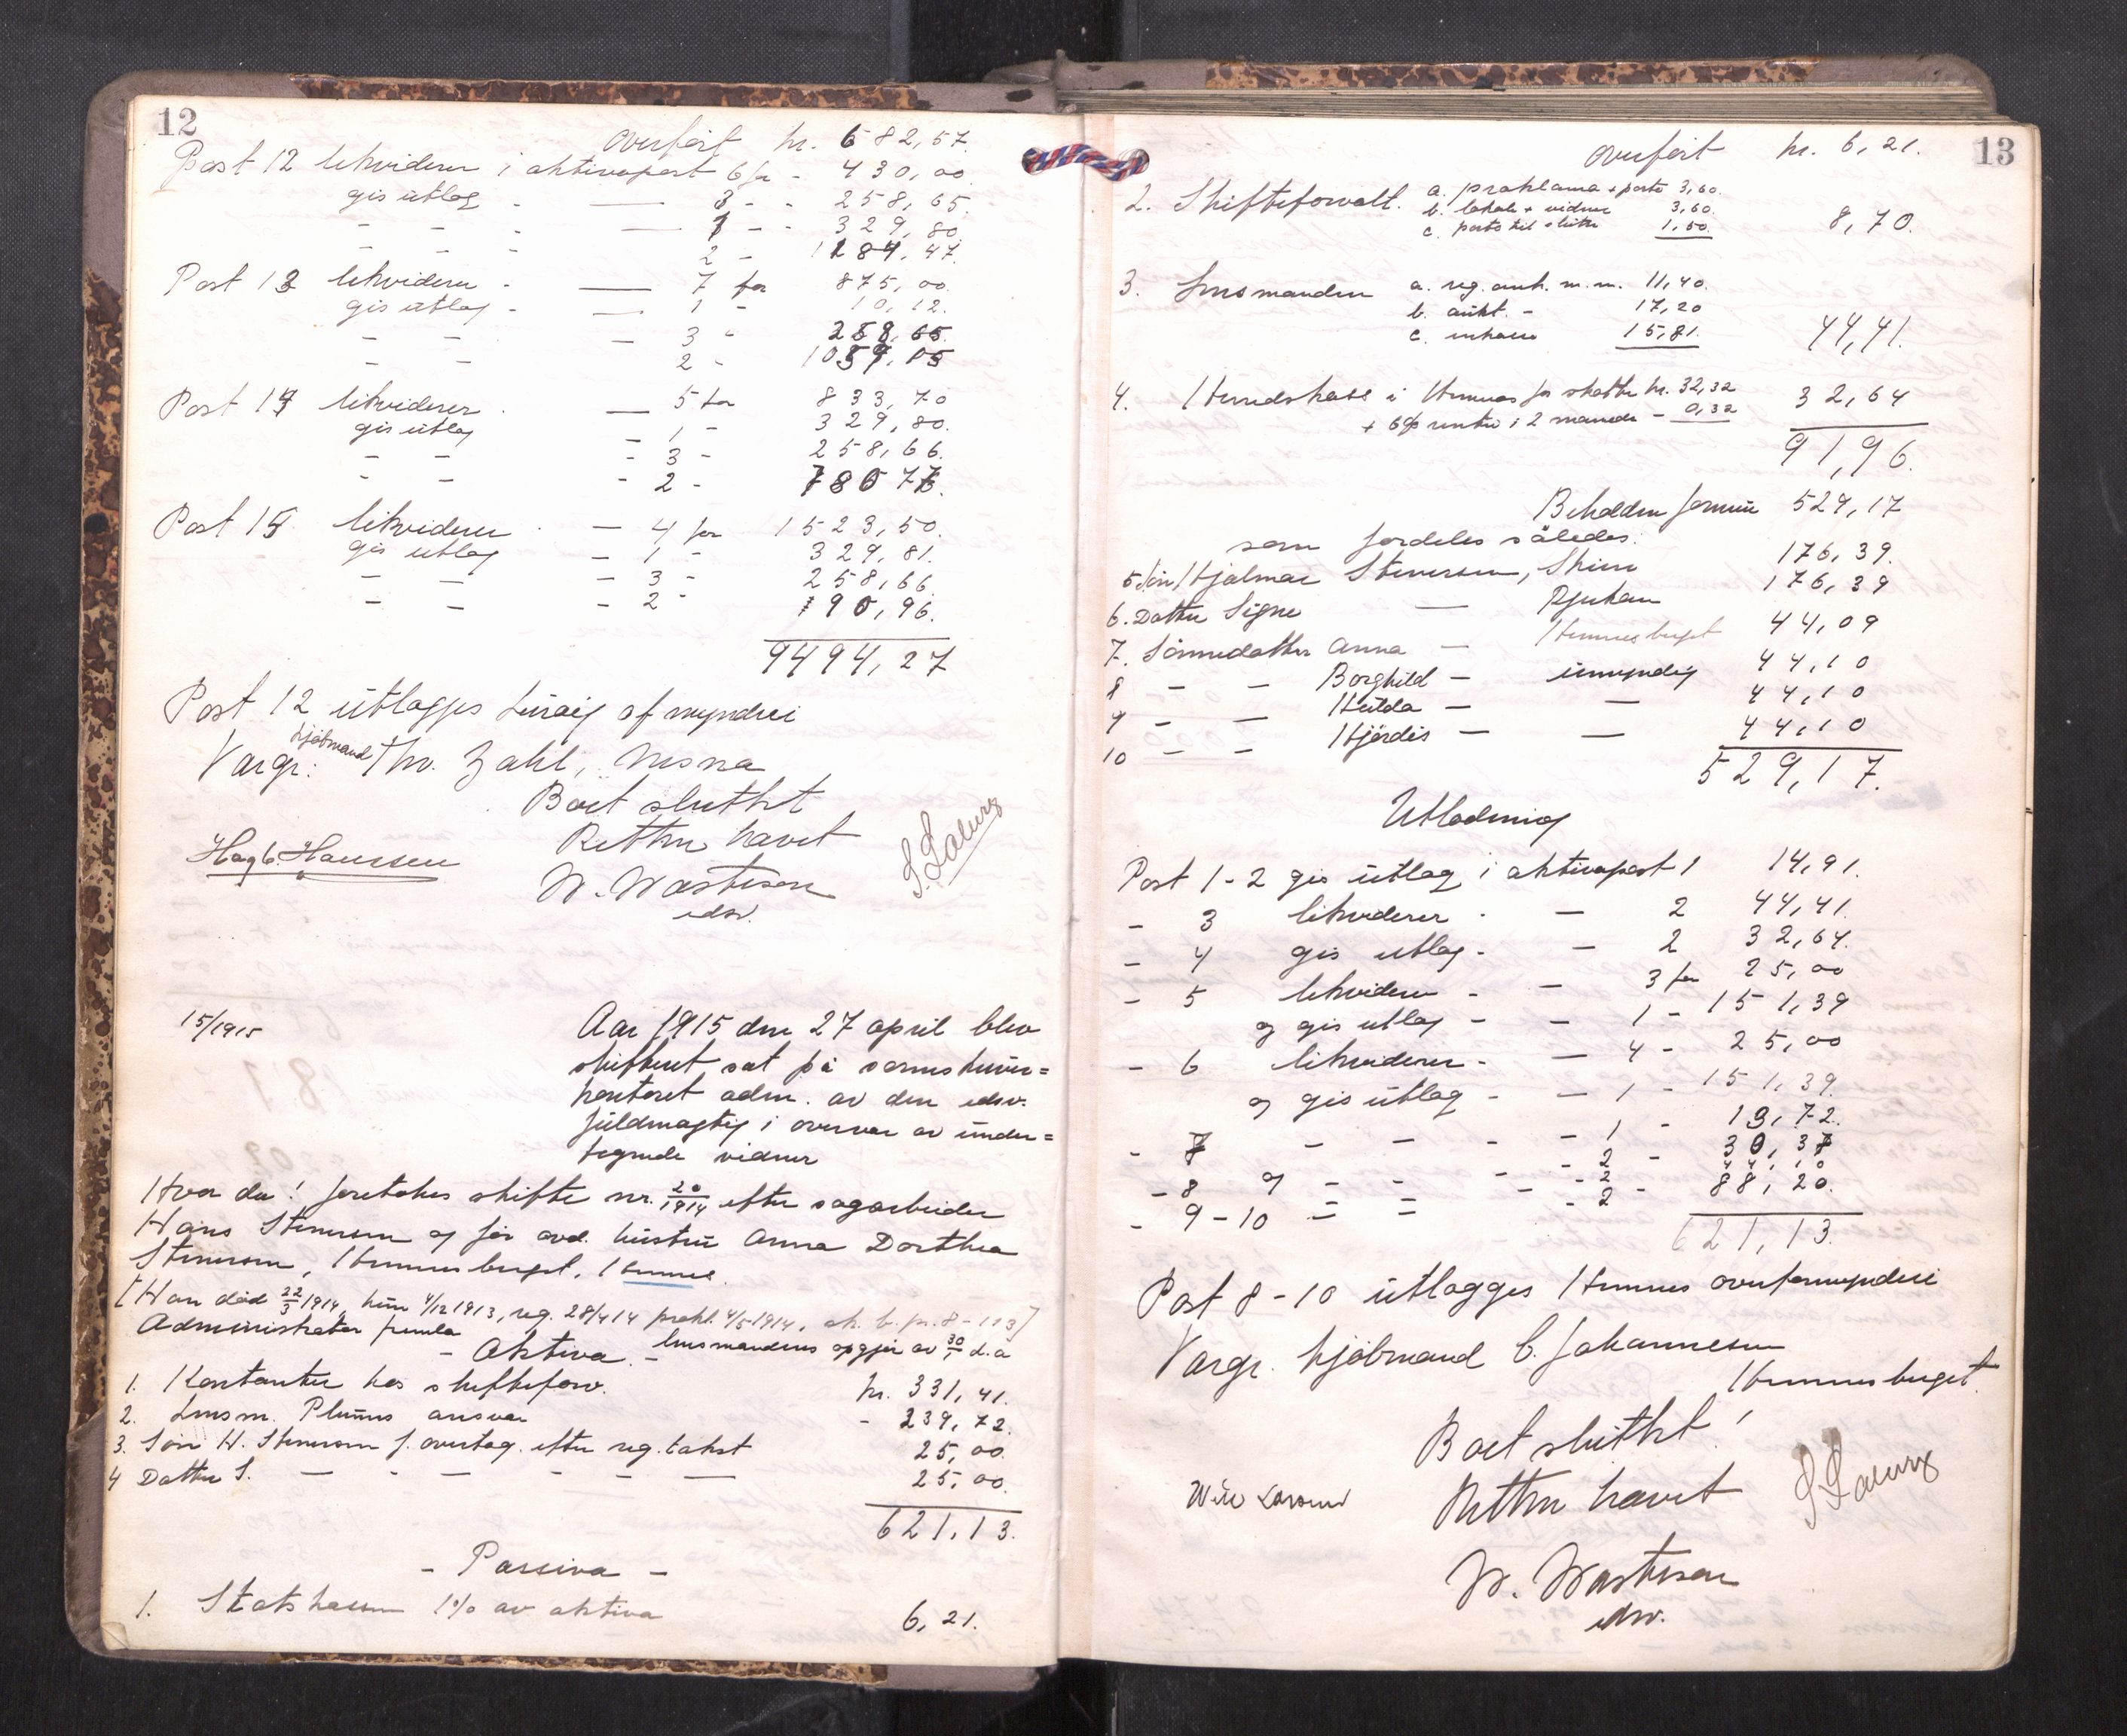 12
overført kr. 682,57.
Post 12 likviderer i aktivapost 6 for - 430,00
gis utlag - — 3 - - 258,65.
- - - — 1 - - 329,80.
- - - 2 - 1184,47.
Post 13 likviderer - — 7 for 875,00.
gis utlag - — 1 - 10,12.
- - — 3 - 258,65.
- - 2 -
Post 14 likviderer . — 5 for 833,70
gis utlag - 1 - 329,80.
- - - 3 - 258,66.
- - - 2 -
Post 15 likviderer . — 4 for 1523,50.
gis utlag - 1 - 329,81.
- - - 3 - 258,66.
- - - 2 - 790,96.
9494,27
Post 12 utlægges Lurøy of myndri
Værgr: kjøbmand Thv. Zahl, Nesna
Boet sluttet
Retten hævet
Hagb. Hanssen
W. Wasteson
edsv.
15/1915
Aar 1915 den 27 april blev
skifteret sat på sorenskriver=
kontoret adm. av den edsv.
fuldmægtig i overvær av under=
tegnede vidner
Hvor da! foretokes skifte nr. 20/1914 efter sagarbeider
Hans Stenersen og før avd. hustru Anna Dorthea
Stenersen, Hemnesberget, Hemnes.
[Han död 22/3 1914, hun 4/12 1913, reg. 28/4 14 prokl. 4/5 1914,
Administrator fremla
- Aktiva - lensmandens opgjør av 30/1 d.a
1. Kontanter hos skifteforv. kr. 331,41.
2. Lensm. Plums ansvar - 239,72.
3. Søn H. Stenersen f. overtag. efter reg. takst 25,00.
4 Datter S. — - — - — — 25,00.
621,13.
- Passiva -
1. Statskassen 1% av aktiva 6,21.
13
overført kr. 6,21.
2. Skifteforvalt. a. proklama + porto 3,60.
b. lokale + vidner 3,60.
c. porto til slutn 1,50.
8,70.
3. Lensmanden a. reg. auk. m.m. 11,40.
b. aukt. - 17,20
c. inkasso 15,81.
44,41.
4. Herredskasse i Hemnes for skatter kr. 32,32
+ 6% renter i 2 maaneder - 0,32
32,64
91,96.
Beholden formue 529,17
som fordeles således:
5. Søn Hjalmar Stenersen, Skien 176,39.
6. Datter Signe — Rjukan 176,39
7. Sønnedatter Anna — Hemnesberget 44,09
8 - - Borghild — umyndig 44,10
9 - — Hulda — — 44,10
10 - - Hjördis — — 44,10
529,17.
Utlodning
Post 1-2 gis utlag i aktivapost 1 14,91.
- 3 likviderer . — 2 44,41.
- 4 gis utlag - — 2 32,64.
- 5 likviderer - — 3 for 25,00
og gis utlag - — 1 - 151,39
- 6 likviderer - — 4 - 25,00
og gis utlag - — 1 - 151,39.
- 7 - - - - 1 - 13,72.
2 - 30,37
- 8 - - - - 2 44,10
- 9-10 - - - 2 - 88,20.
621,13.
Post 8-10 utlægges Hemnes overformynderi
Værgr. kjöbmand C. Johannesen
Hemnesberget.
Boet sluttet!
Retten hævet
W. Wasteson
edsv.